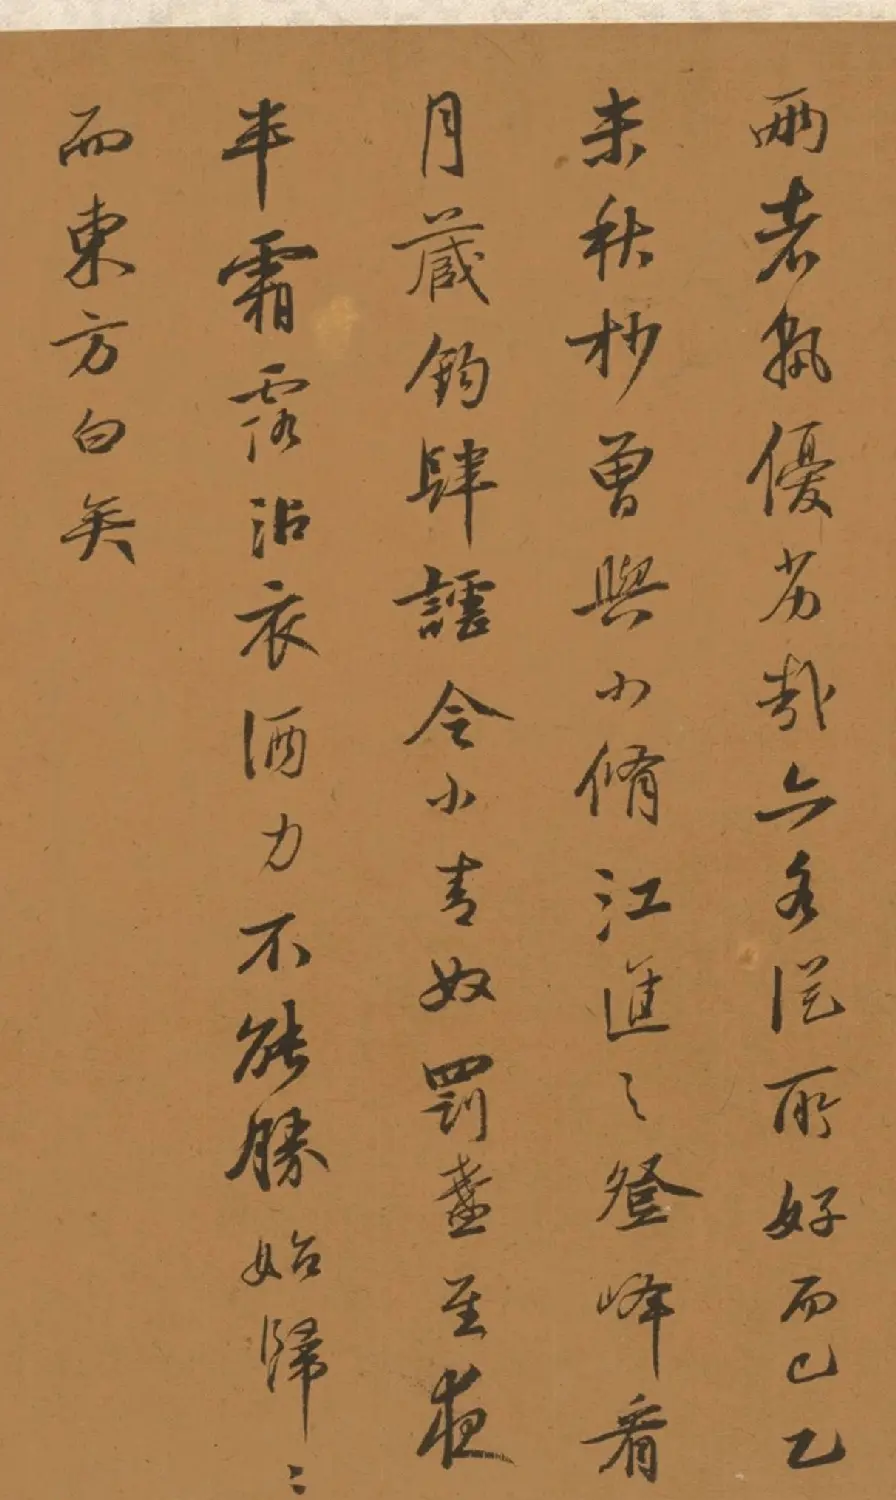 兩者孰優劣哉亦各從所好而已乙
未秋杪曾與小脩江進之登峰看
月藏鉤肆謔令小青奴罰盞至夜
半霜露沾衣酒力不能勝始歸歸
而東方白矣